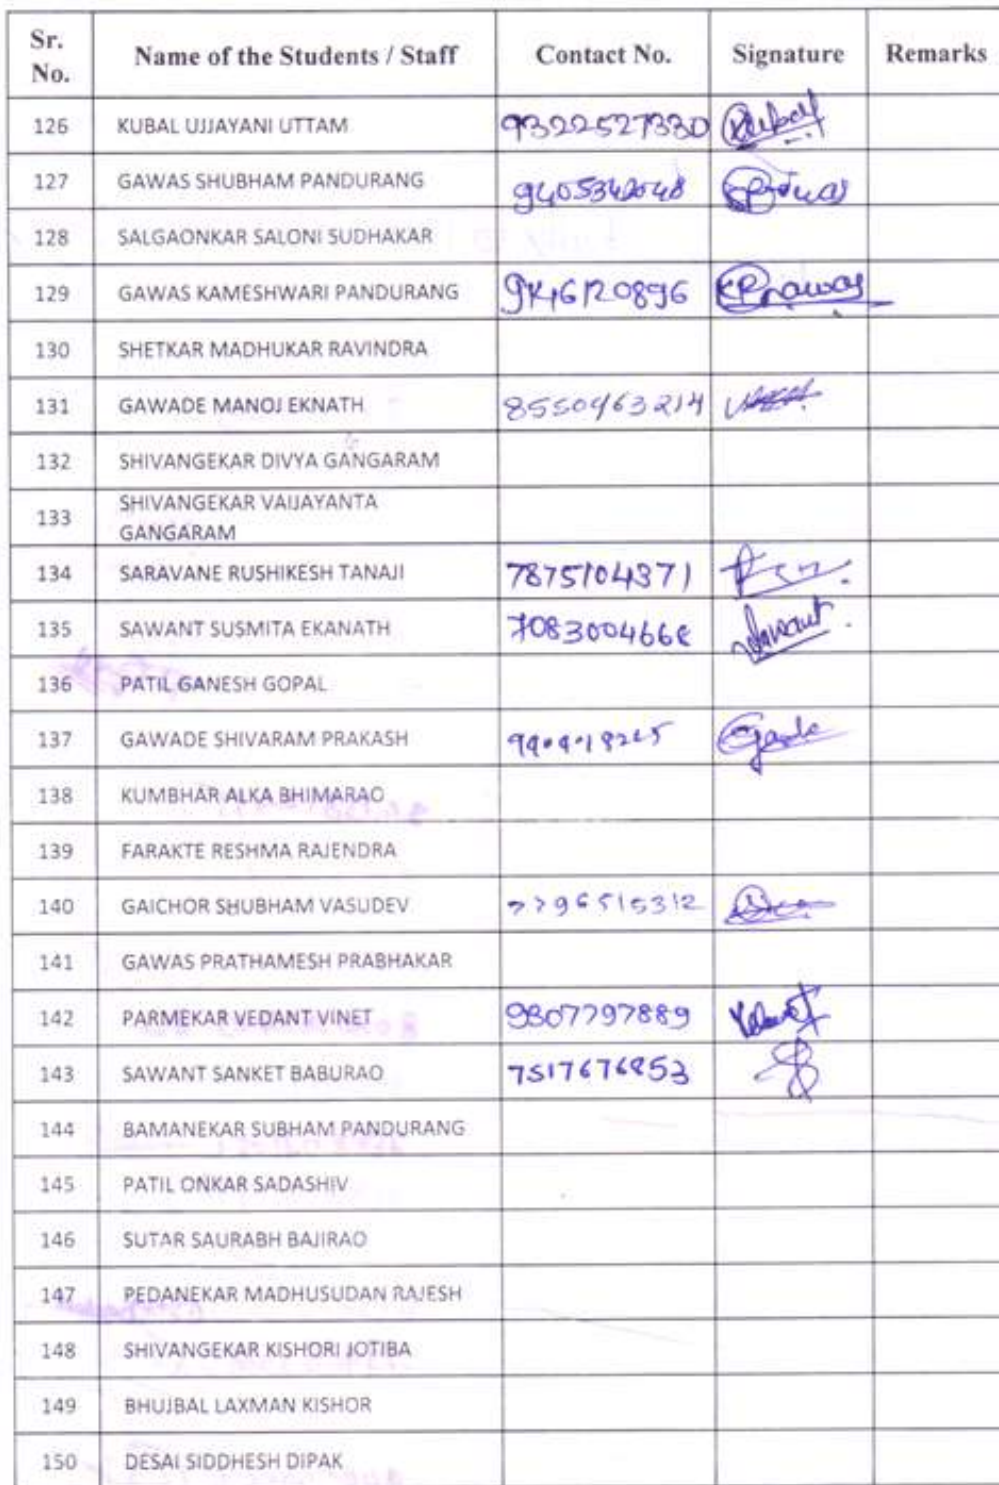 Sr. No. Name of the Students / Staff Contact No. Signature Remarks
126 KUBAL UJJAYANI UTTAM 9322527330
127 GAWAS SHUBHAM PANDURANG
128 SALGAONKAR SALONI SUDHAKAR
129 GAWAS KAMESHWARI PANDURANG
130 SHETKAR MADHUKAR RAVINDRA
131 GAWADE MANOJ EKNATH 8550463214
132 SHIVANGEKAR DIVYA GANGARAM
133 SHIVANGEKAR VAIJAYANTA
GANGARAM
134 SARAVANE RUSHIKESH TANAJI 7875104371
135 SAWANT SUSMITA EKANATH
136 PATIL GANESH GOPAL
137 GAWADE SHIVARAM PRAKASH
138 KUMBHAR ALKA BHIMARAO
139 FARAKTE RESHMA RAJENDRA
140 GAICHOR SHUBHAM VASUDEV 7796515312
141 GAWAS PRATHAMESH PRABHAKAR
142 PARMEKAR VEDANT VINET 9307797889
143 SAWANT SANKET BABURAO
144 BAMANEKAR SUBHAM PANDURANG
145 PATIL ONKAR SADASHIV
146 SUTAR SAURABH BAJIRAO
147 PEDANEKAR MADHUSUDAN RAJESH
148 SHIVANGEKAR KISHORI JOTIBA
149 BHUJBAL LAXMAN KISHOR
150 DESAI SIDDHESH DIPAK